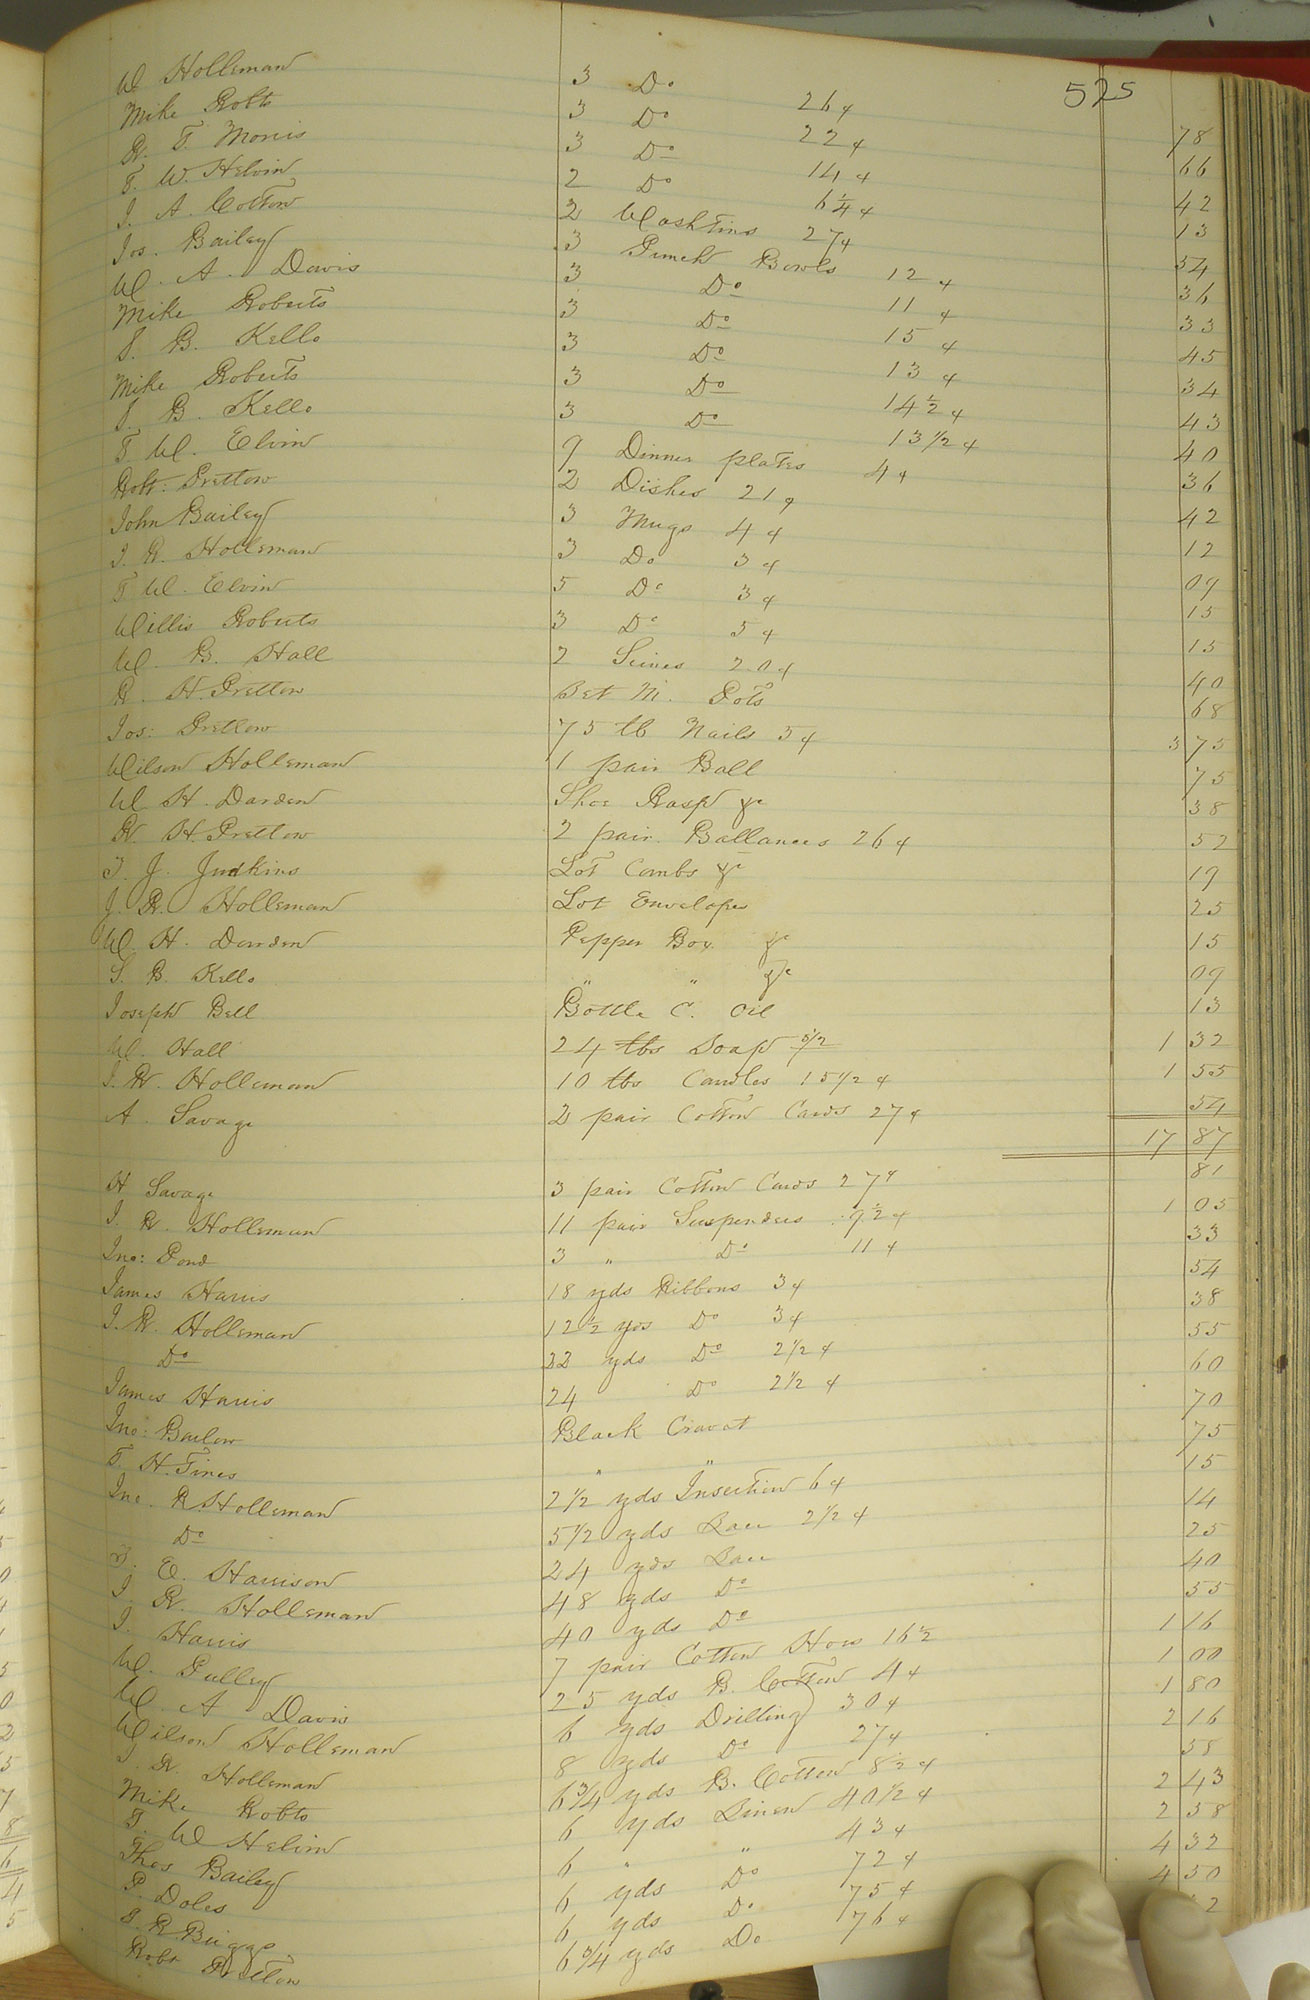 525
W Holleman 3 Do 26¢ 78
Mike Robts 3 Do 22¢ 66
R. T. Morris 3 Do 14¢ 42
T. W. Helvin 2 Do 6¼¢ 13
J. A. Cotton 2 Washtins 27¢ 54
Jos. Bailey 3 Punch Bowls 12¢ 36
W. A. Davis 3 Do 11¢ 33
Mike Roberts 3 Do 15¢ 45
S. B. Kello 3 Do 13¢ 34
Mike Roberts 3 Do 14½¢ 43
S. B. Kello 3 Do 13½¢ 40
T. W. Elvin 9 Dinner plates 4¢ 36
Robt: Pretlow 2 Dishes 21¢ 42
John Bailey 3 Mugs 4¢ 12
J. R. Holleman 3 Do 3¢ 09
T W. Elvin 5 Do 3¢ 15
Willis Roberts 3 Do 5¢ 15
W. B. Hall 2 Seives 20¢ 40
R. H. Pretlow Set M. Pots 68
Jos: Pretlow 75 lb Nails 5¢ 3 75
Wilson Holleman 1 pair Ball 75
W H. Darden Shoe Rasp &c 38
R. H. Pretlow 2 pair Ballances 26¢ 52
J. J. Judkins Lot Combs &c 19
J. R. Holleman Lot Envelopes 25
W. H. Darden Pepper Box &c 15
S. B. Kello " " &c 09
Joseph Bell Bottle C. Oil 13
W. Hall 24 lbs Soap 5½ 1 32
J. R. Holleman 10 lbs Candles 15½¢ 1 55
A. Savage 2 pair Cotton Cards 27¢ 54
17 87
H Savage 3 pair Cotton Cards 27¢ 81
J. R. Holleman 11 pair Suspenders 9½¢ 1 05
Jno: Pond 3 " Do 11¢ 33
James Harris 18 yds Ribbons 3¢ 54
J. R. Holleman 12½ yds Do 3¢ 38
Do 22 yds Do 2½¢ 55
James Harris 24 Do 2½¢ 60
Jno: Barlow Black Cravat 70
T. H. Tines " " 75
Jno. R. Holleman 2½ yds Insertion 6¢ 15
Do 5½ yds Lace 2½¢ 14
J. E. Harrison 24 yds Lace 25
J. R. Holleman 48 yds Do 40
J. Harris 40 yds Do 55
W. Gulley 7 pair Cotton Hose 16½ 1 16
W. A Davis 25 yds B. Cotton 4¢ 1 00
Wilson Holleman 6 yds Drilling 30¢ 1 80
J. R. Holleman 8 yds Do 27¢ 2 16
Mike Robts 6¾ yds B. Cotton 8½¢ 58
T. W Helvin 6 yds Linen 40½¢ 2 43
Thos Bailey 6 " " 43¢ 2 58
P. Doles 6 yds Do 72¢ 4 32
S. R Briggs 6 yds Do 75¢ 4 50
Robt Pretlow 6¾ yds Do 76¢ 2